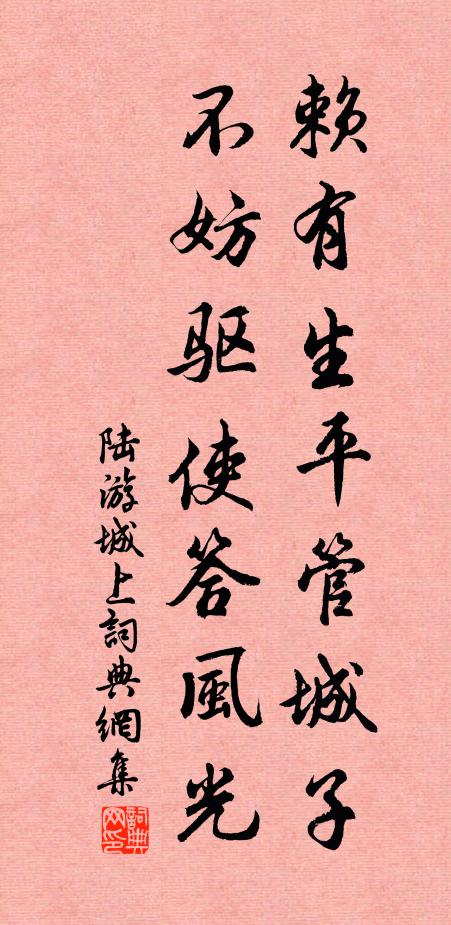 赖有生平管城子
不妨驱使答風光
陆游城上詞典網集
詞典
网印